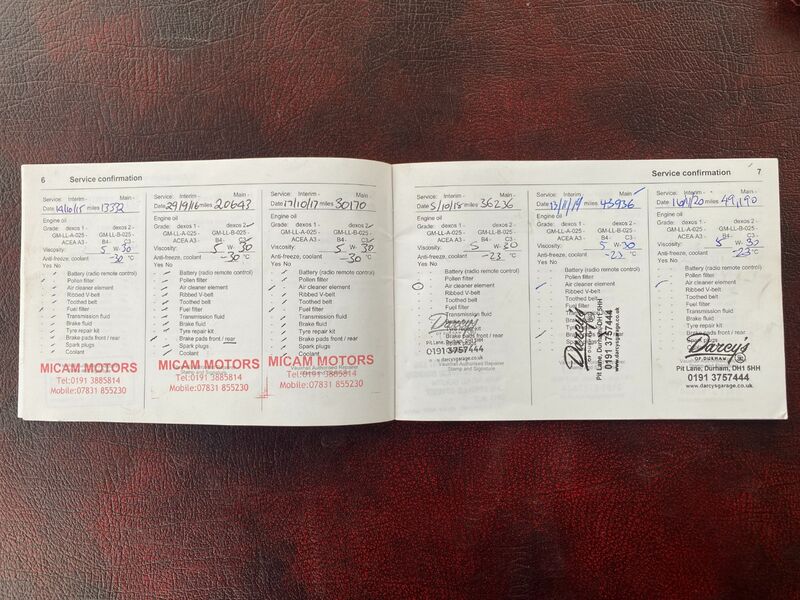 6
Service confirmation
Service: Interim - Main -
Date 14/10/15 miles 13332
Engine oil
Grade: dexos 1 - dexos 2 -
GM-LL-A-025 - GM-LL-B-025 -
ACEA A3 - B4- C3
Viscosity: 5 W- 30
Anti-freeze, coolant -30 °C
Yes No
Battery (radio remote control)
Pollen filter
Air cleaner element
Ribbed V-belt
Toothed belt
Fuel filter
Transmission fluid
Brake fluid
Tyre repair kit
Brake pads front / rear
Spark plugs
Coolant
MICAM MOTORS
Tel:0191 3885814
Mobile:07831 855230
Service: Interim - Main -
Date 29/9/16 miles 20643
Engine oil
Grade: dexos 1 - dexos 2 -
GM-LL-A-025 - GM-LL-B-025 -
ACEA A3 - B4- C3
Viscosity: 5 W- 30
Anti-freeze, coolant -30 °C
Yes No
Battery (radio remote control)
Pollen filter
Air cleaner element
Ribbed V-belt
Toothed belt
Fuel filter
Transmission fluid
Brake fluid
Tyre repair kit
Brake pads front / rear
Spark plugs
Coolant
MICAM MOTORS
Tel:0191 3885814
Mobile:07831 855230
Service: Interim - Main -
Date 17/10/17 miles 30170
Engine oil
Grade: dexos 1 - dexos 2
GM-LL-A-025 - GM-LL-B-025 -
ACEA A3 - B4- C3
Viscosity: 5 W- 30
Anti-freeze, coolant -30 °C
Yes No
Battery (radio remote control)
Pollen filter
Air cleaner element
Ribbed V-belt
Toothed belt
Fuel filter
Transmission fluid
Brake fluid
Tyre repair kit
Brake pads front / rear
Spark plugs
Coolant
MICAM MOTORS
Vauxhall Authorised Repairer
Stamp and Signature
Tel:0191 3885814
Mobile:07831 855230
Service confirmation
7
Service: Interim - Main -
Date 5/10/18 miles 36236
Engine oil
Grade: dexos 1 - dexos 2 -
GM-LL-A-025 - GM-LL-B-025 -
ACEA A3 - B4- C3 -
Viscosity: 5 W- 30
Anti-freeze, coolant -23 °C
Yes No
Battery (radio remote control)
Pollen filter
Air cleaner element
Ribbed V-belt
Toothed belt
Fuel filter
Transmission fluid
Brake fluid
Tyre repair kit
Brake pads front / rear
Darcy's
Pit Lane, Durham, DH1 5HH
0191 3757444
Vauxhall Authorised Repairer
Stamp and Signature
Service: Interim - Main -
miles 43936
Engine oil
Grade: dexos 1 - dexos 2 -
GM-LL-A-025 - GM-LL-B-025 -
ACEA A3 - B4- C3-
Viscosity: 5 W-30
Anti-freeze, coolant -23 °C
Yes No
Battery (radio remote control)
Pollen filter
Air cleaner element
Ribbed V-belt
Toothed belt
Fuel filter
Transmission fluid
Brake fluid
Tyre repair kit
Brake pads
Spark plugs
Darcy's
OF DURHAM
Pit Lane, Durham, DH1 5HH
0191 3757444
www.darcysgarage.co.uk
Service: Interim Main -
miles 49,190
Engine oil
Grade: dexos 1 - dexos 2 -
GM-LL-A-025 - GM-LL-B-025 -
ACEA A3 - B4- C3-
Viscosity: 5 W- 30
Anti-freeze, coolant -23 °C
Yes No
Battery (radio remote control)
Pollen filter
Air cleaner element
Ribbed V-belt
Toothed belt
Fuel filter
Transmission fluid
Brake fluid
Tyre repair kit
Brake pads front / rear
Spark plugs
Darcy's
OF DURHAM
Pit Lane, Durham, DH1 5HH
0191 3757444
www.darcysgarage.co.uk